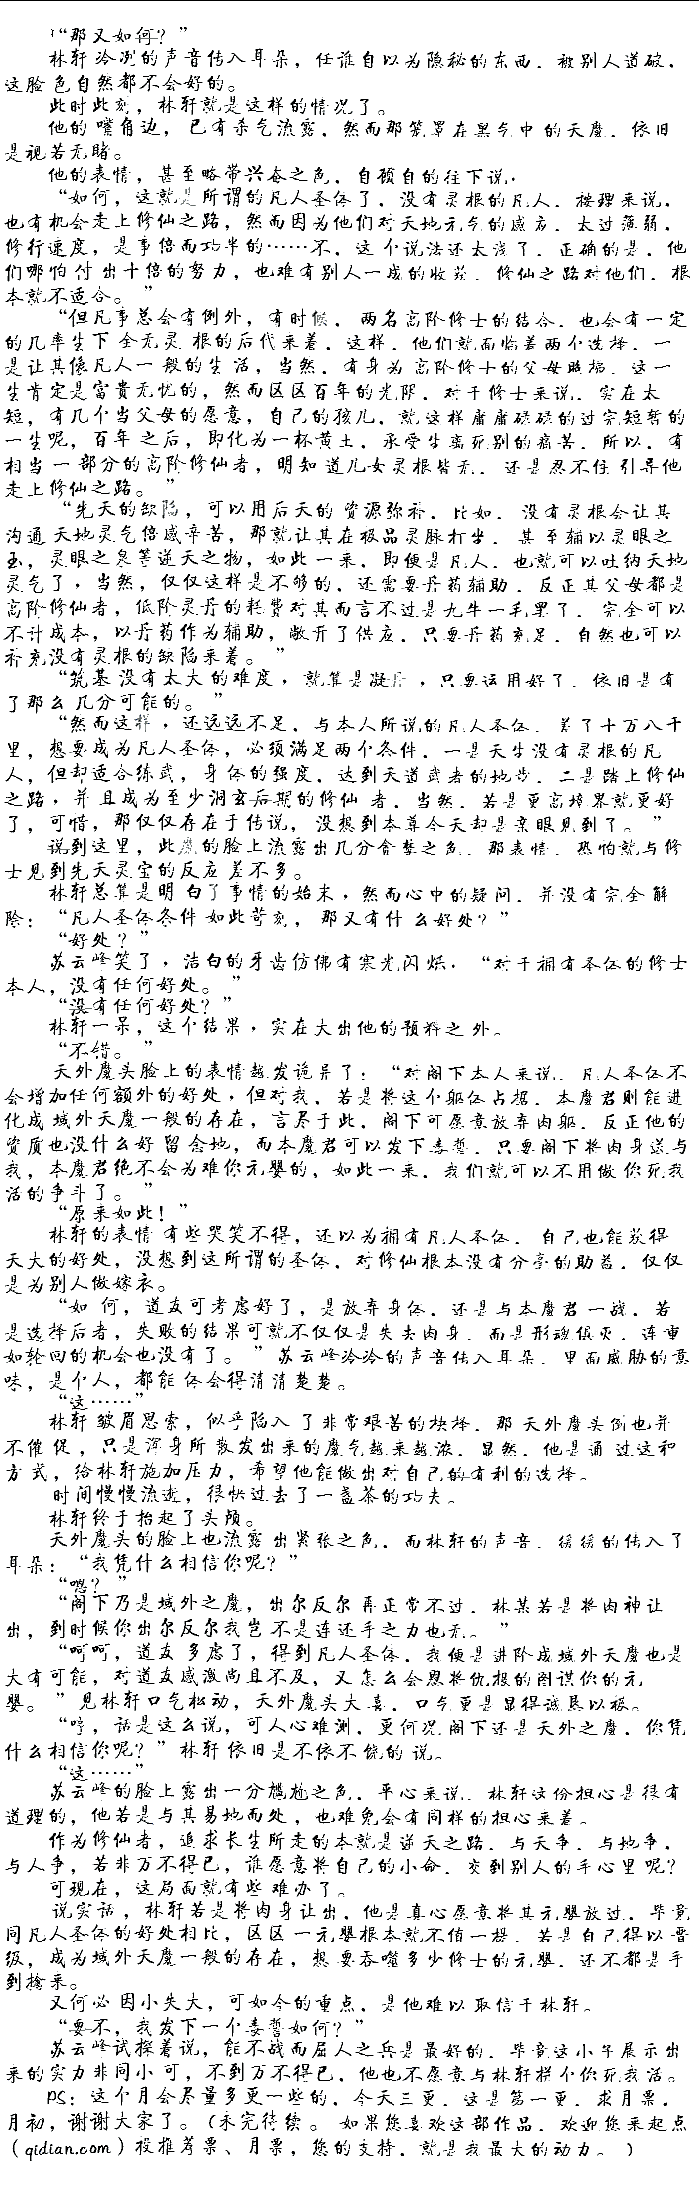 “那又如何？”
林轩冷冽的声音传入耳朵，任谁自以为隐秘的东西，被别人道破，
这脸色自然都不会好的。
此时此刻，林轩就是这样的情况了。
他的嘴角边，已有杀气流露，然而那笼罩在黑气中的天魔，依旧
是视若无睹。
他的表情，甚至略带兴奋之色，自顾自的往下说：
“如何，这就是所谓的凡人圣体了，没有灵根的凡人，按理来说，
也有机会走上修仙之路，然而因为他们对天地元气的感应，太过薄弱，
修行速度，是事倍而功半的……不，这个说法还太浅了，正确的是，他
们哪怕付出十倍的努力，也难有别人一成的收获，修仙之路对他们，根
本就不适合。”
“但凡事总会有例外，有时候，两名高阶修士的结合，也会有一定
的几率生下全无灵根的后代来着，这样，他们就面临着两个选择，一
是让其像凡人一般的生活，当然，有身为高阶修士的父母照拂，这一
生肯定是富贵无忧的，然而区区百年的光阴，对于修士来说，实在太
短，有几个当父母的愿意，自己的孩儿，就这样庸庸碌碌的过完短暂的
一生呢，百年之后，即化为一杯黄土，承受生离死别的痛苦，所以，有
相当一部分的高阶修仙者，明知道儿女灵根皆无，还是忍不住引导他
走上修仙之路。”
“先天的缺陷，可以用后天的资源弥补，比如，没有灵根会让其
沟通天地灵气倍感辛苦，那就让其在极品灵脉打坐，甚至辅以灵眼之
玉，灵眼之泉等逆天之物，如此一来，即便是凡人，也就可以吐纳天地
灵气了，当然，仅仅这样是不够的，还需要丹药辅助，反正其父母都是
高阶修仙者，低阶灵丹的耗费对其而言不过是九牛一毛罢了，完全可以
不计成本，以丹药作为辅助，敞开了供应，只要丹药充足，自然也可以
补充没有灵根的缺陷来着。”
“筑基没有太大的难度，就算是凝丹，只要运用好了，依旧是有
了那么几分可能的。”
“然而这样，还远远不足，与本人所说的凡人圣体，差了十万八千
里，想要成为凡人圣体，必须满足两个条件，一是天生没有灵根的凡
人，但却适合练武，身体的强度，达到天道武者的地步，二是踏上修仙
之路，并且成为至少洞玄后期的修仙者，当然，若是更高境界就更好
了，可惜，那仅仅存在于传说，没想到本尊今天却是亲眼见到了。”
说到这里，此魔的脸上流露出几分贪婪之色，那表情，恐怕就与修
士见到先天灵宝的反应差不多。
林轩总算是明白了事情的始末，然而心中的疑问，并没有完全解
除：“凡人圣体条件如此苛刻，那又有什么好处？”
“好处？”
苏云峰笑了，洁白的牙齿仿佛有寒光闪烁，“对于拥有圣体的修士
本人，没有任何好处。”
“没有任何好处？”
林轩一呆，这个结果，实在大出他的预料之外。
“不错。”
天外魔头脸上的表情越发诡异了：“对阁下本人来说，凡人圣体不
会增加任何额外的好处，但对我，若是将这个躯体占据，本魔君则能进
化成域外天魔一般的存在，言尽于此，阁下可愿意放弃肉躯，反正他的
资质也没什么好留念地，而本魔君可以发下毒誓，只要阁下将肉身送与
我，本魔君绝不会为难你元婴的，如此一来，我们就可以不用做你死我
活的争斗了。”
“原来如此！”
林轩的表情有些哭笑不得，还以为拥有凡人圣体，自己也能获得
天大的好处，没想到这所谓的圣体，对修仙根本没有分毫的助益，仅仅
是为别人做嫁衣。
“如何，道友可考虑好了，是放弃身体，还是与本魔君一战，若
是选择后者，失败的结果可就不仅仅是失去肉身，而是形魂俱灭，连重
如轮回的机会也没有了。”苏云峰冷冷的声音传入耳朵，里面威胁的意
味，是个人，都能体会得清清楚楚。
“这……”
林轩皱眉思索，似乎陷入了非常艰苦的抉择，那天外魔头倒也并
不催促，只是浑身所散发出来的魔气越来越浓，显然，他是通过这种
方式，给林轩施加压力，希望他能做出对自己的有利的选择。
时间慢慢流逝，很快过去了一盏茶的功夫。
林轩终于抬起了头颅。
天外魔头的脸上也流露出紧张之色，而林轩的声音，缓缓的传入了
耳朵：“我凭什么相信你呢？”
“嗯？”
“阁下乃是域外之魔，出尔反尔再正常不过，林某若是将肉神让
出，到时候你出尔反尔我岂不是连还手之力也无。”
“呵呵，道友多虑了，得到凡人圣体，我便是进阶成域外天魔也是
大有可能，对道友感激尚且不及，又怎么会恩将仇报的图谋你的元
婴。”见林轩口气松动，天外魔头大喜，口气更是显得诚恳以极。
“哼，话是这么说，可人心难测，更何况阁下还是天外之魔，你凭
什么相信你呢？”林轩依旧是不依不饶的说。
“这……”
苏云峰的脸上露出一分尴尬之色，平心来说，林轩这份担心是很有
道理的，他若是与其易地而处，也难免会有同样的担心来着。
作为修仙者，追求长生所走的本就是逆天之路，与天争，与地争，
与人争，若非万不得已，谁愿意将自己的小命，交到别人的手心里呢？
可现在，这局面就有些难办了。
说实话，林轩若是将肉身让出，他是真心愿意将其元婴放过，毕竟
同凡人圣体的好处相比，区区一元婴根本就不值一提，若是自己得以晋
级，成为域外天魔一般的存在，想要吞噬多少修士的元婴，还不都是手
到擒来。
又何必因小失大，可如今的重点，是他难以取信于林轩。
“要不，我发下一个毒誓如何？”
苏云峰试探着说，能不战而屈人之兵是最好的，毕竟这小子展示出
来的实力非同小可，不到万不得已，他也不愿意与林轩拼个你死我活。
PS：这个月会尽量多更一些的，今天三更，这是第一更，求月票，
月初，谢谢大家了。（未完待续。如果您喜欢这部作品，欢迎您来起点
（qidian.com）投推荐票、月票，您的支持，就是我最大的动力。）